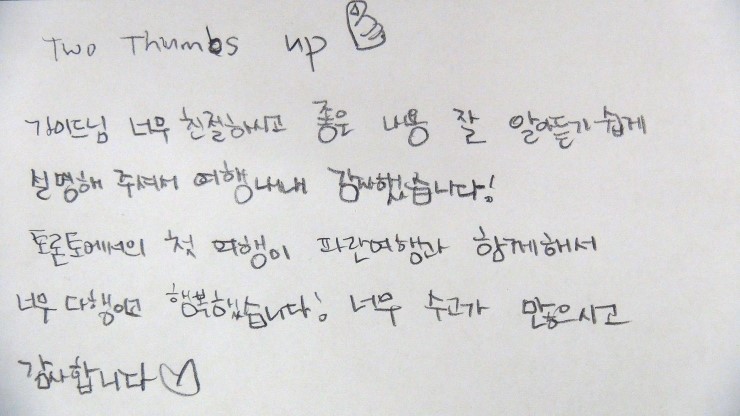 Two Thumbs up
가이드님 너무 친절하시고 좋은 내용 잘 알아듣기 쉽게
설명해 주셔서 여행내내 감사했습니다!
토론토에서의 첫 여행이 파란여행과 함께해서
너무 다행이고 행복했습니다! 너무 수고가 많으시고
감사합니다♡